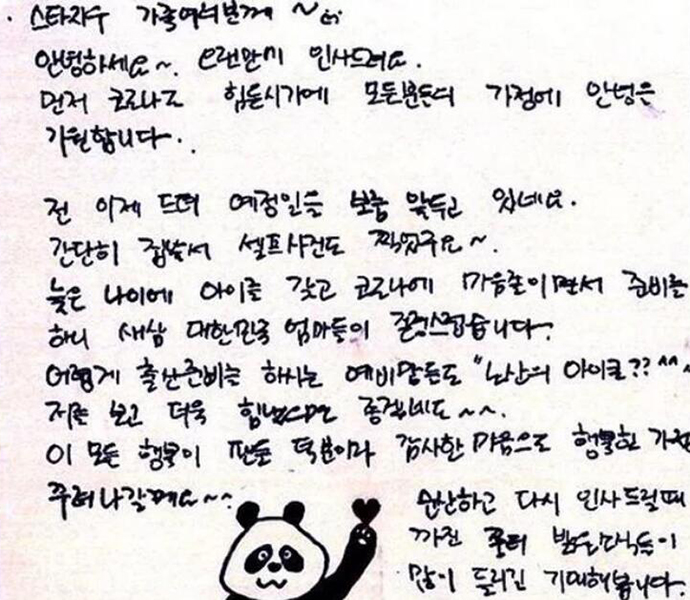 스타자수 가족여러분께 ~
안녕하세요~. 오랜만에 인사드려요.
먼저 코로나로 힘든시기에 모든분들의 가정에 안녕을
기원합니다..
전 이제 드뎌 예정일을 보름 앞두고 있네요.
간단히 집앞서 셀프사진도 찍었구요~.
늦은 나이에 아이를 갖고 코로나에 마음졸이면서 준비를
하니 새삼 대한민국 엄마들이 존경스럽습니다.
어렵게 출산준비는 하시는 예비맘들도 "노산의 아이콘??^^
저를 보고 더욱 힘냈으면 좋겠네요~~.
이 모든 행복이 팬분 덕분이라 감사한 마음으로 행복한 가정
꾸려나갈께요~~.
순산하고 다시 인사드릴때
까진 좀더 밝은소식들이
많이 들리길 기대해봅니다.